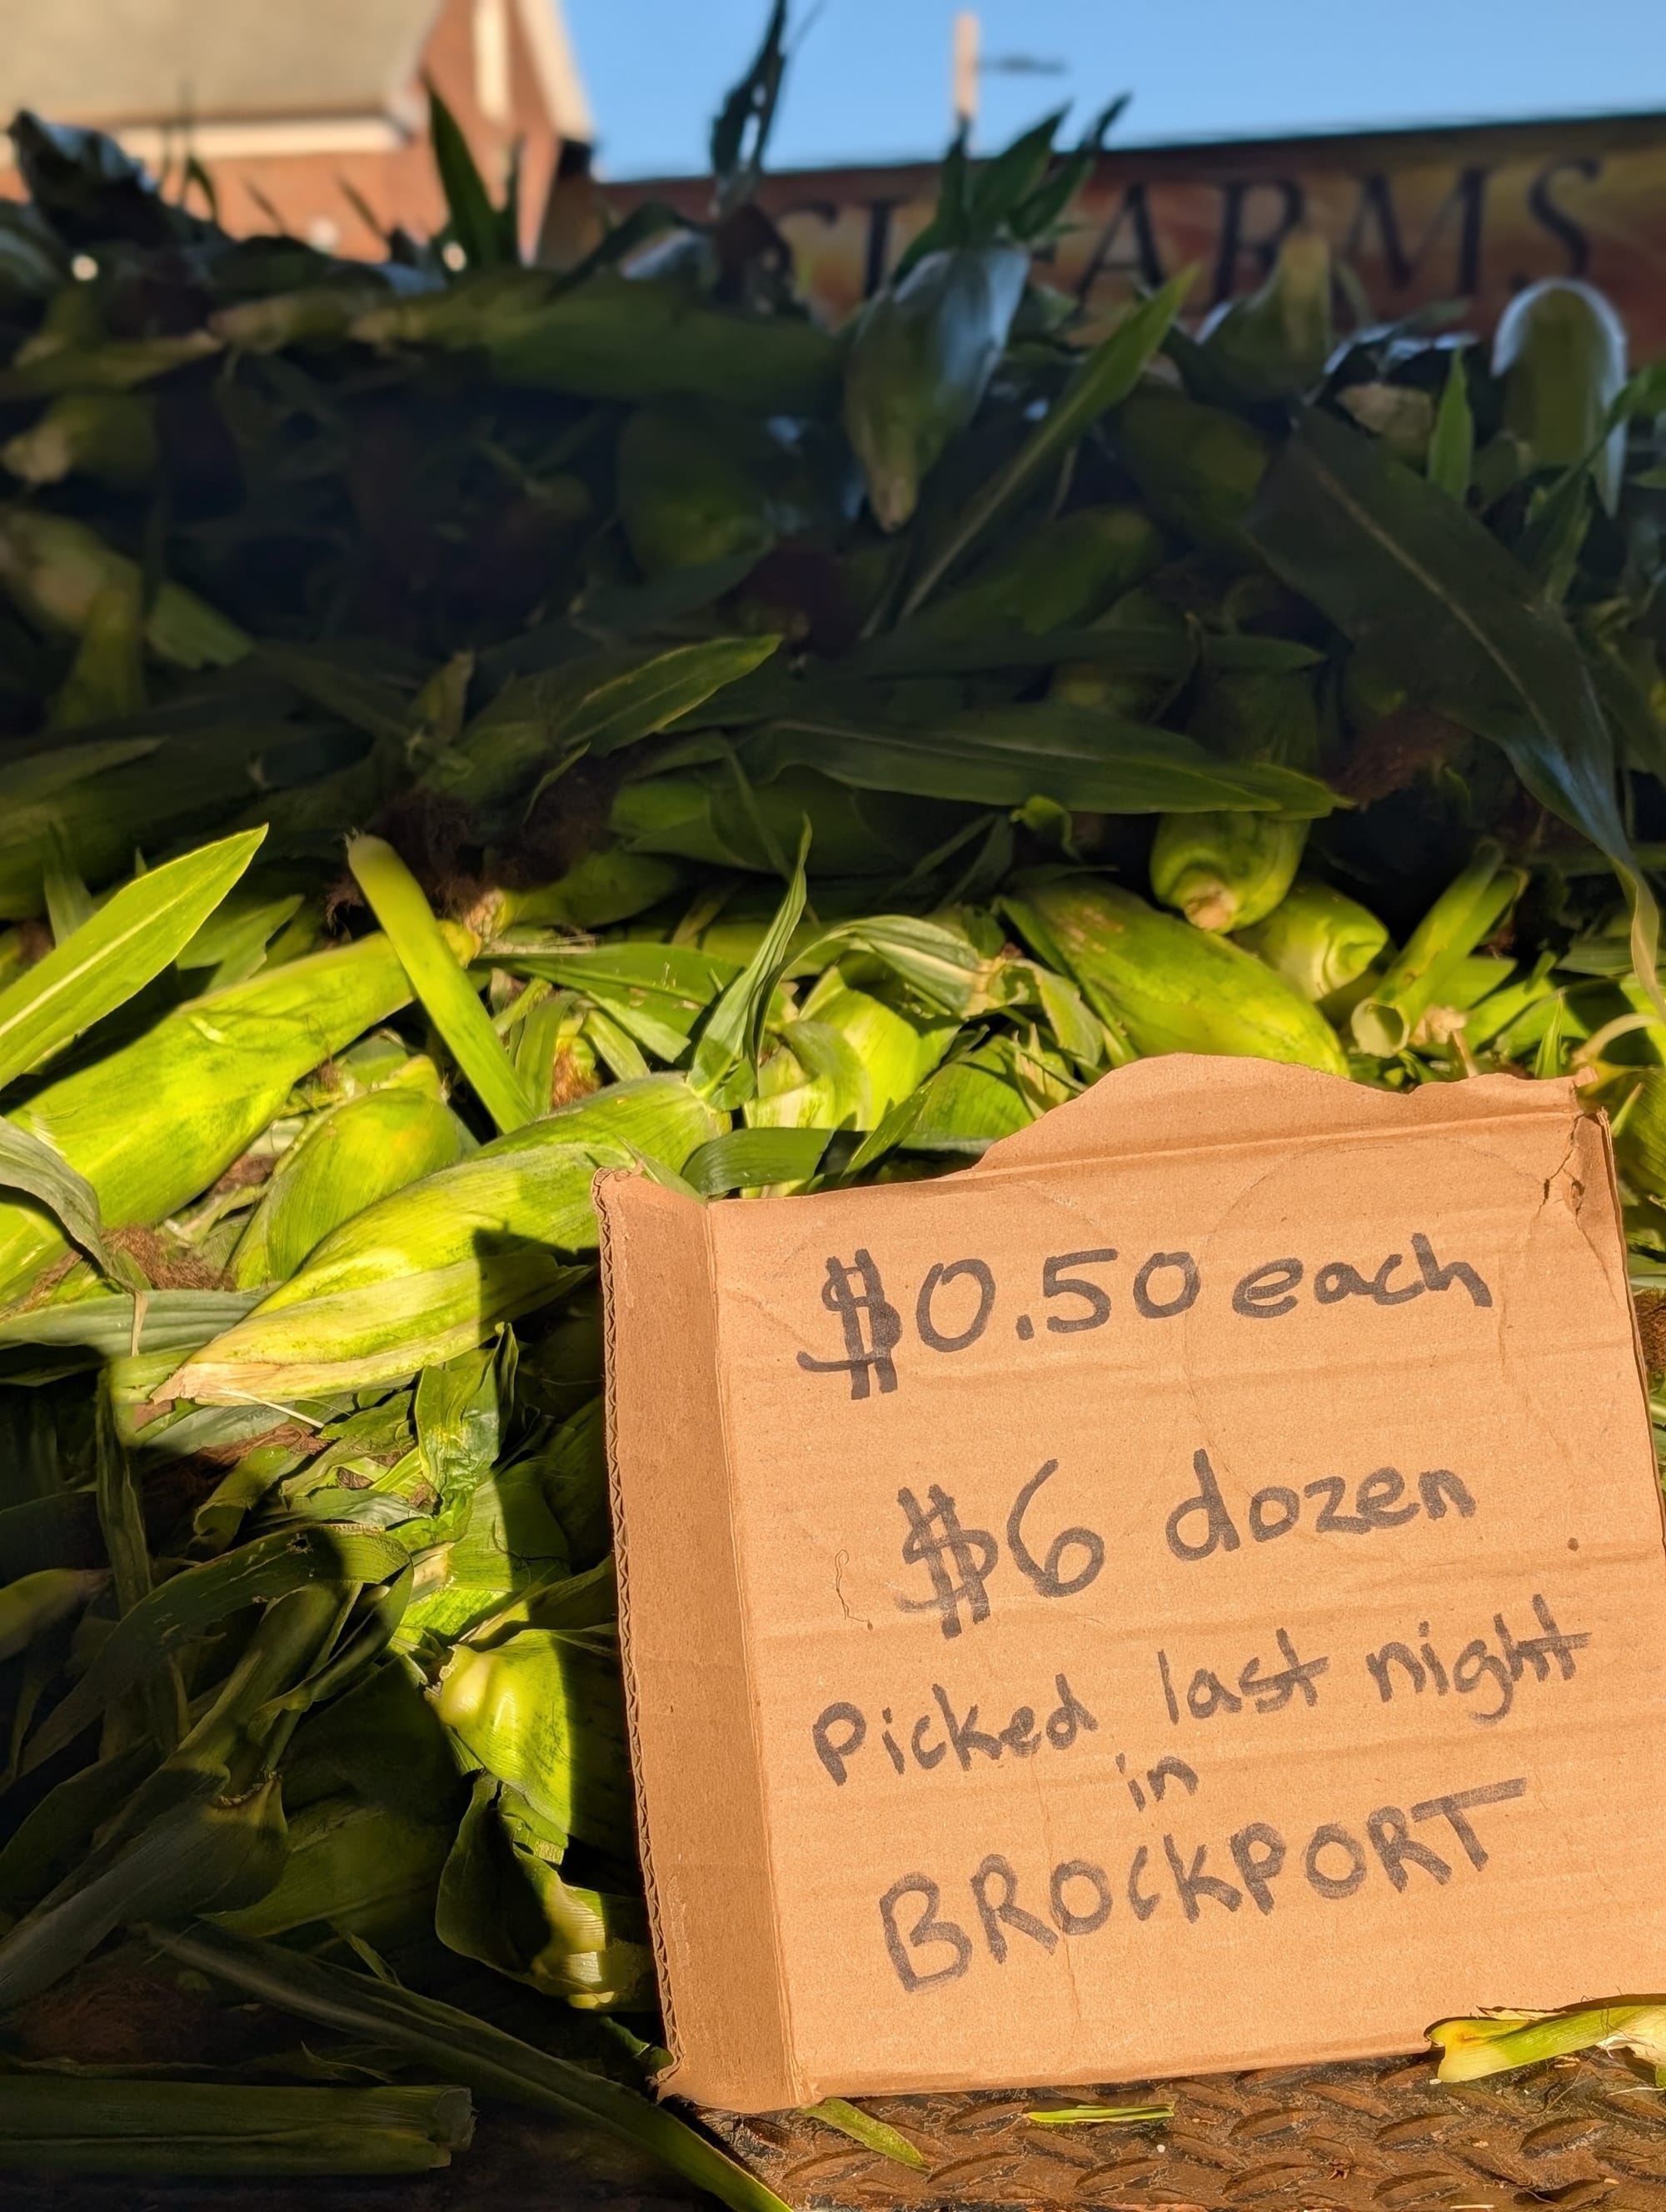 FARMS
$0.50 each
$6 dozen
Picked last night
in
BROCKPORT